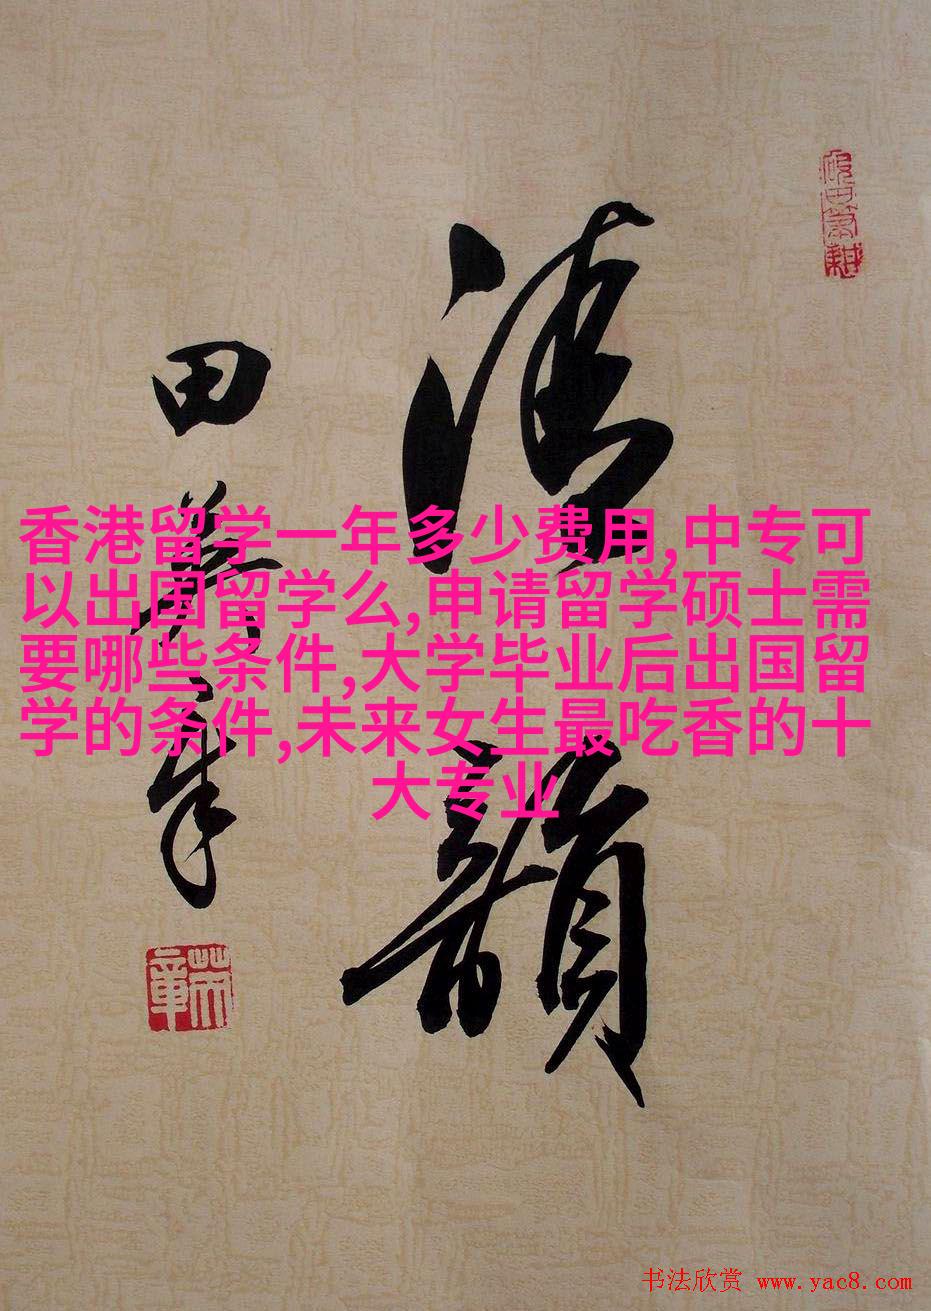 香港留学一年多少费用,中专可
以出国留学么,申请留学硕士需
要哪些条件,大学毕业后出国留
学的条件,未来女生最吃香的十
大专业
清韻
田
书法欣赏 www.yac8.com